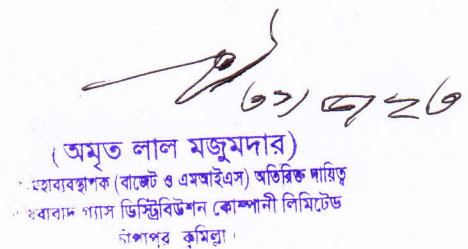 (অমৃত লাল মজুমদার)
মহাব্যবস্থাপক (বাজেট ও এমআইএস) অতিরিক্ত দায়িত্ব
গ্যাস ডিস্ট্রিবিউশন কোম্পানী লিমিটেড
চাঁপাপুর কুমিল্লা।